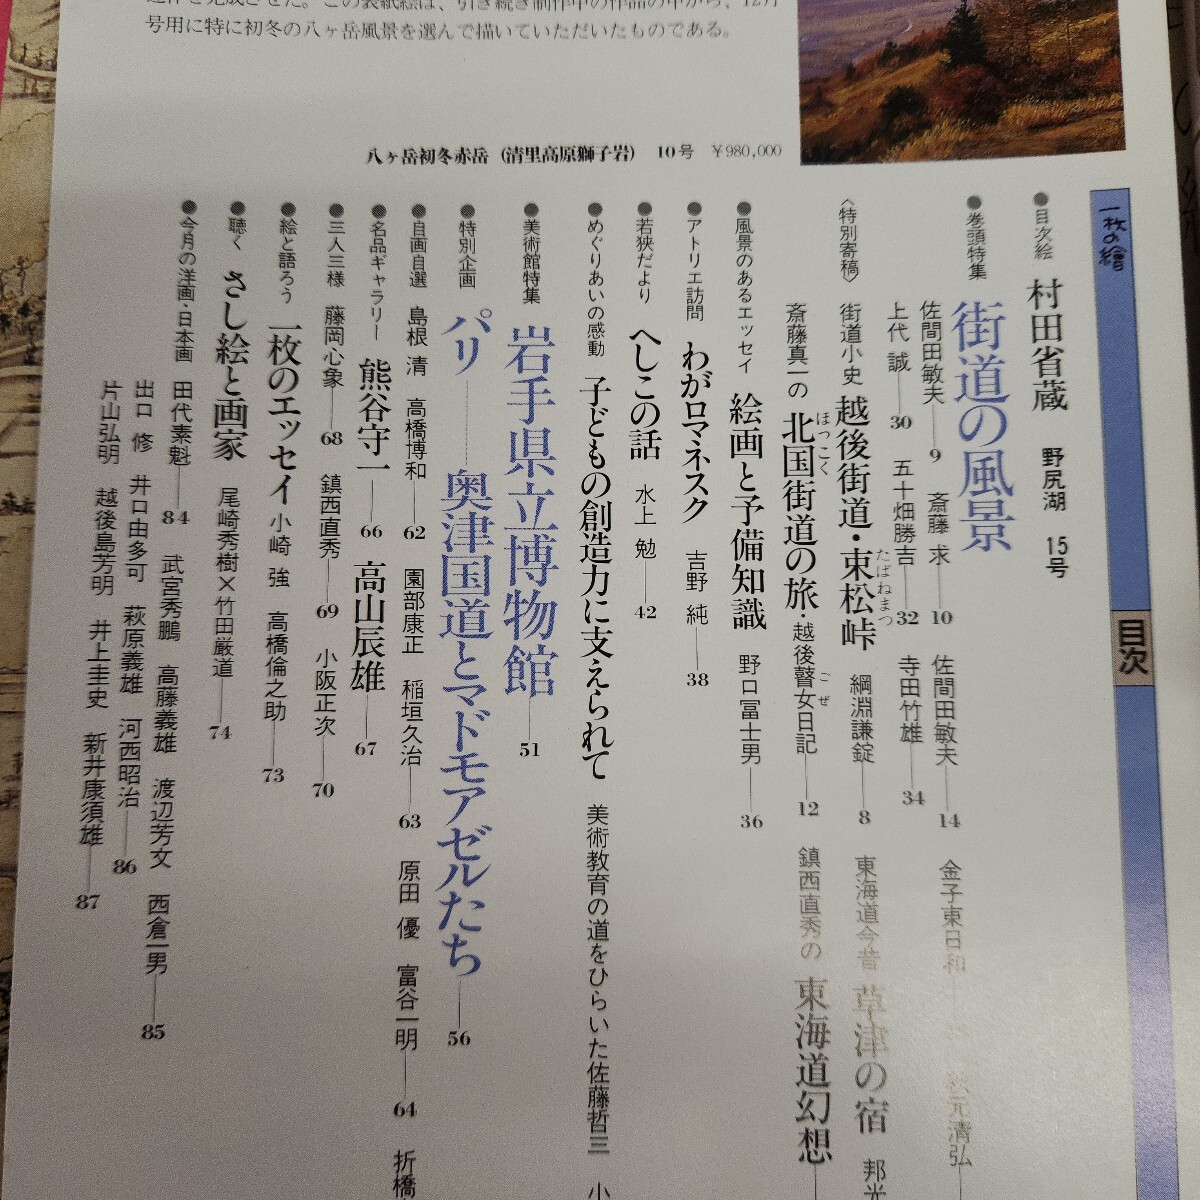 号用に特に初冬の八ヶ岳風景を選んで描いていただいたものである。
八ヶ岳初冬赤岳（清里高原獅子岩） 10号 ￥980,000
一枚の繪
目次
●目次絵 村田省蔵 野尻湖 15号
●巻頭特集 街道の風景
佐間田敏夫 9 斎藤 求 10 佐間田敏夫 14 金子東日和
元清弘
上代 誠 30 五十畑勝吉 32 寺田竹雄 34
〈特別寄稿〉 街道小史 越後街道・束松峠 綱淵謙錠 8 東海道今昔 草津の宿 邦光
たばねまつ
斎藤真一の 北国街道の旅・越後瞽女日記 12 鎮西直秀の 東海道幻想
ほっこく
ごぜ
●風景のあるエッセイ 絵画と予備知識 野口冨士男 36
●アトリエ訪問 わがロマネスク 吉野 純 38
●若狭だより へしこの話 水上 勉 42
●めぐりあいの感動 子どもの創造力に支えられて 美術教育の道をひらいた佐藤哲三 小
●美術館特集 岩手県立博物館 51
●特別企画 パリ 奥津国道とマドモアゼルたち 56
●自画自選 島根 清 高橋博和 62 園部康正 稲垣久治 63 原田 優 富谷一明 64 折橋
●名品ギャラリー 熊谷守一 66 高山辰雄 67
●三人三様 藤岡心象 68 鎮西直秀 69 小阪正次 70
●絵と語ろう 一枚のエッセイ 小崎 強 高橋倫之助 73
●聴く さし絵と画家 尾崎秀樹×竹田厳道 74
●今月の洋画・日本画 田代素魁 84 武宮秀鵬 高藤義雄 渡辺芳文 西倉一男 85
出口 修 井口由多可 萩原義雄 河西昭治 86
片山弘明 越後島芳明 井上圭史 新井康須雄 87